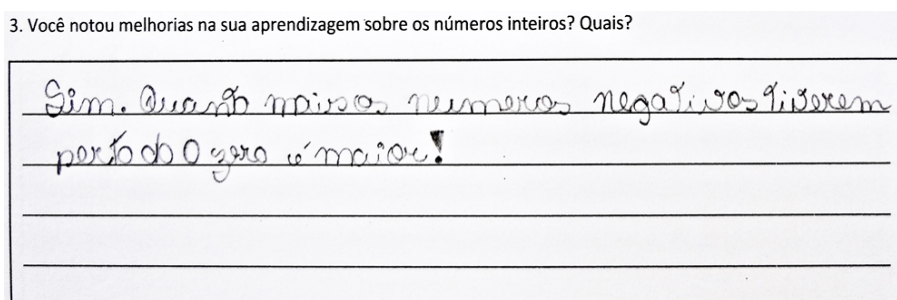 3. Você notou melhorias na sua aprendizagem sobre os números inteiros? Quais?
Sim. Quanto mais os numeros negativos tiverem
perto do 0 zero é maior!